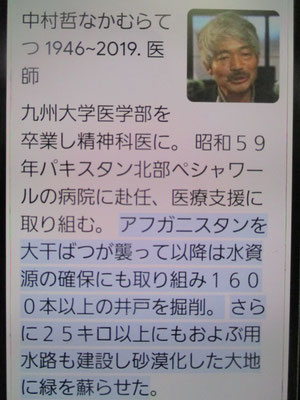 中村哲なかむらて
つ 1946~2019. 医
師
九州大学医学部を
卒業し精神科医に。 昭和５９
年パキスタン北部ペシャワー
ルの病院に赴任、医療支援に
取り組む。 アフガニスタンを
大干ばつが襲って以降は水資
源の確保にも取り組み１６０
０本以上の井戸を掘削。 さら
に２５キロ以上にもおよぶ用
水路も建設し砂漠化した大地
に緑を蘇らせた。